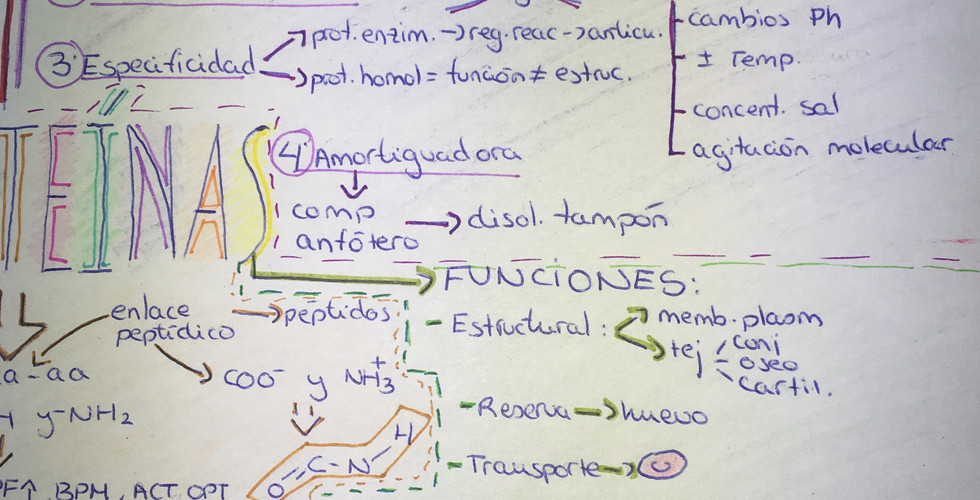 cambios Ph
prot. enzim. → reg. reac → articu.
3. Especificidad
± Temp.
prot. homol = función ≠ estruc.
concent. sal
agitación molecular
TEINAS
4. Amortiguadora
comp → disol. tampón
anfótero
FUNCIONES:
enlace → péptidos
peptídico
- Estructural: memb. plasm
tej conj
oseo
cartil.
a - aa
COO⁻ y NH₃⁺
y -NH₂
- Reserva → huevo
C - N H
O
- Transporte →
PF↑ BPM, ACT. OPT